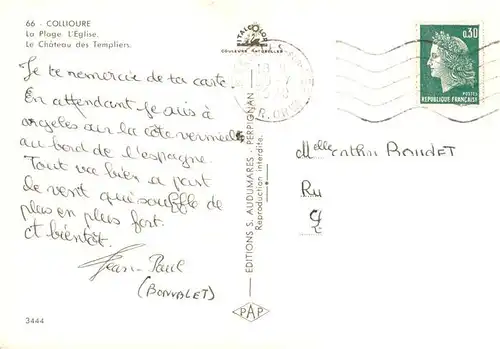 66 - COLLIOURE
La Plage L'Eglise.
Le Château des Templiers.
COULEURS NATURELLES
Je te remercie de ta carte.
En attendant je suis à
argeles sur la côte vermeille
au bord de l'espagne.
Tout va bien a part
le vent qui souffle de
plus en plus fort.
et bientôt.
Jean-Paul
(BONVALET)
3444
EDITIONS S. AUDUMARES - PERPIGNAN
Reproduction interdite.
PAP
0.30
POSTES
REPUBLIQUE FRANÇAISE
Melle BOUDET
Ru